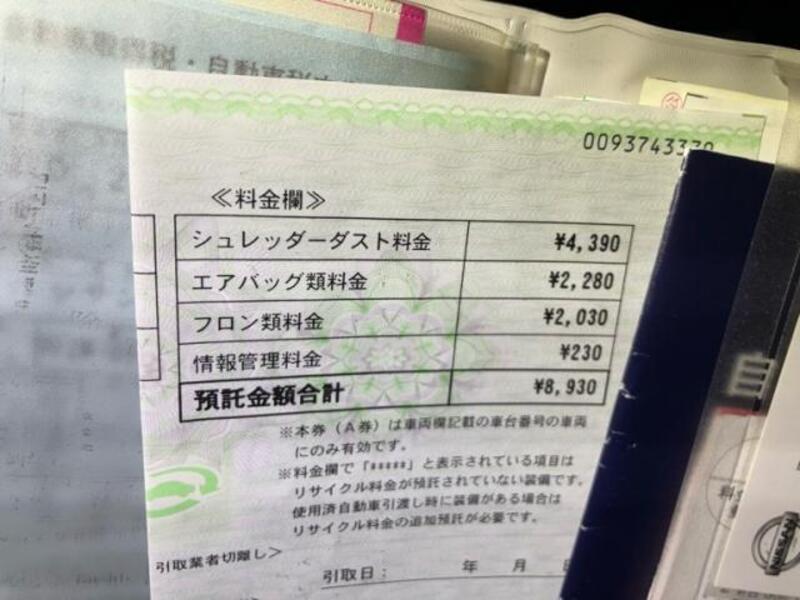 自動車
0093743330
≪料金欄≫
シュレッダーダスト料金 ¥4,390
エアバッグ類料金 ¥2,280
フロン類料金 ¥2,030
情報管理料金 ¥230
預託金額合計 ¥8,930
※本券（A券）は車両欄記載の車台番号の車両
にのみ有効です。
※料金欄で「*****」と表示されている項目は
リサイクル料金が預託されていない装備です。
使用済自動車引渡し時に装備がある場合は
リサイクル料金の追加預託が必要です。
引取業者切離し＞
引取日： 年 月
NISSAN